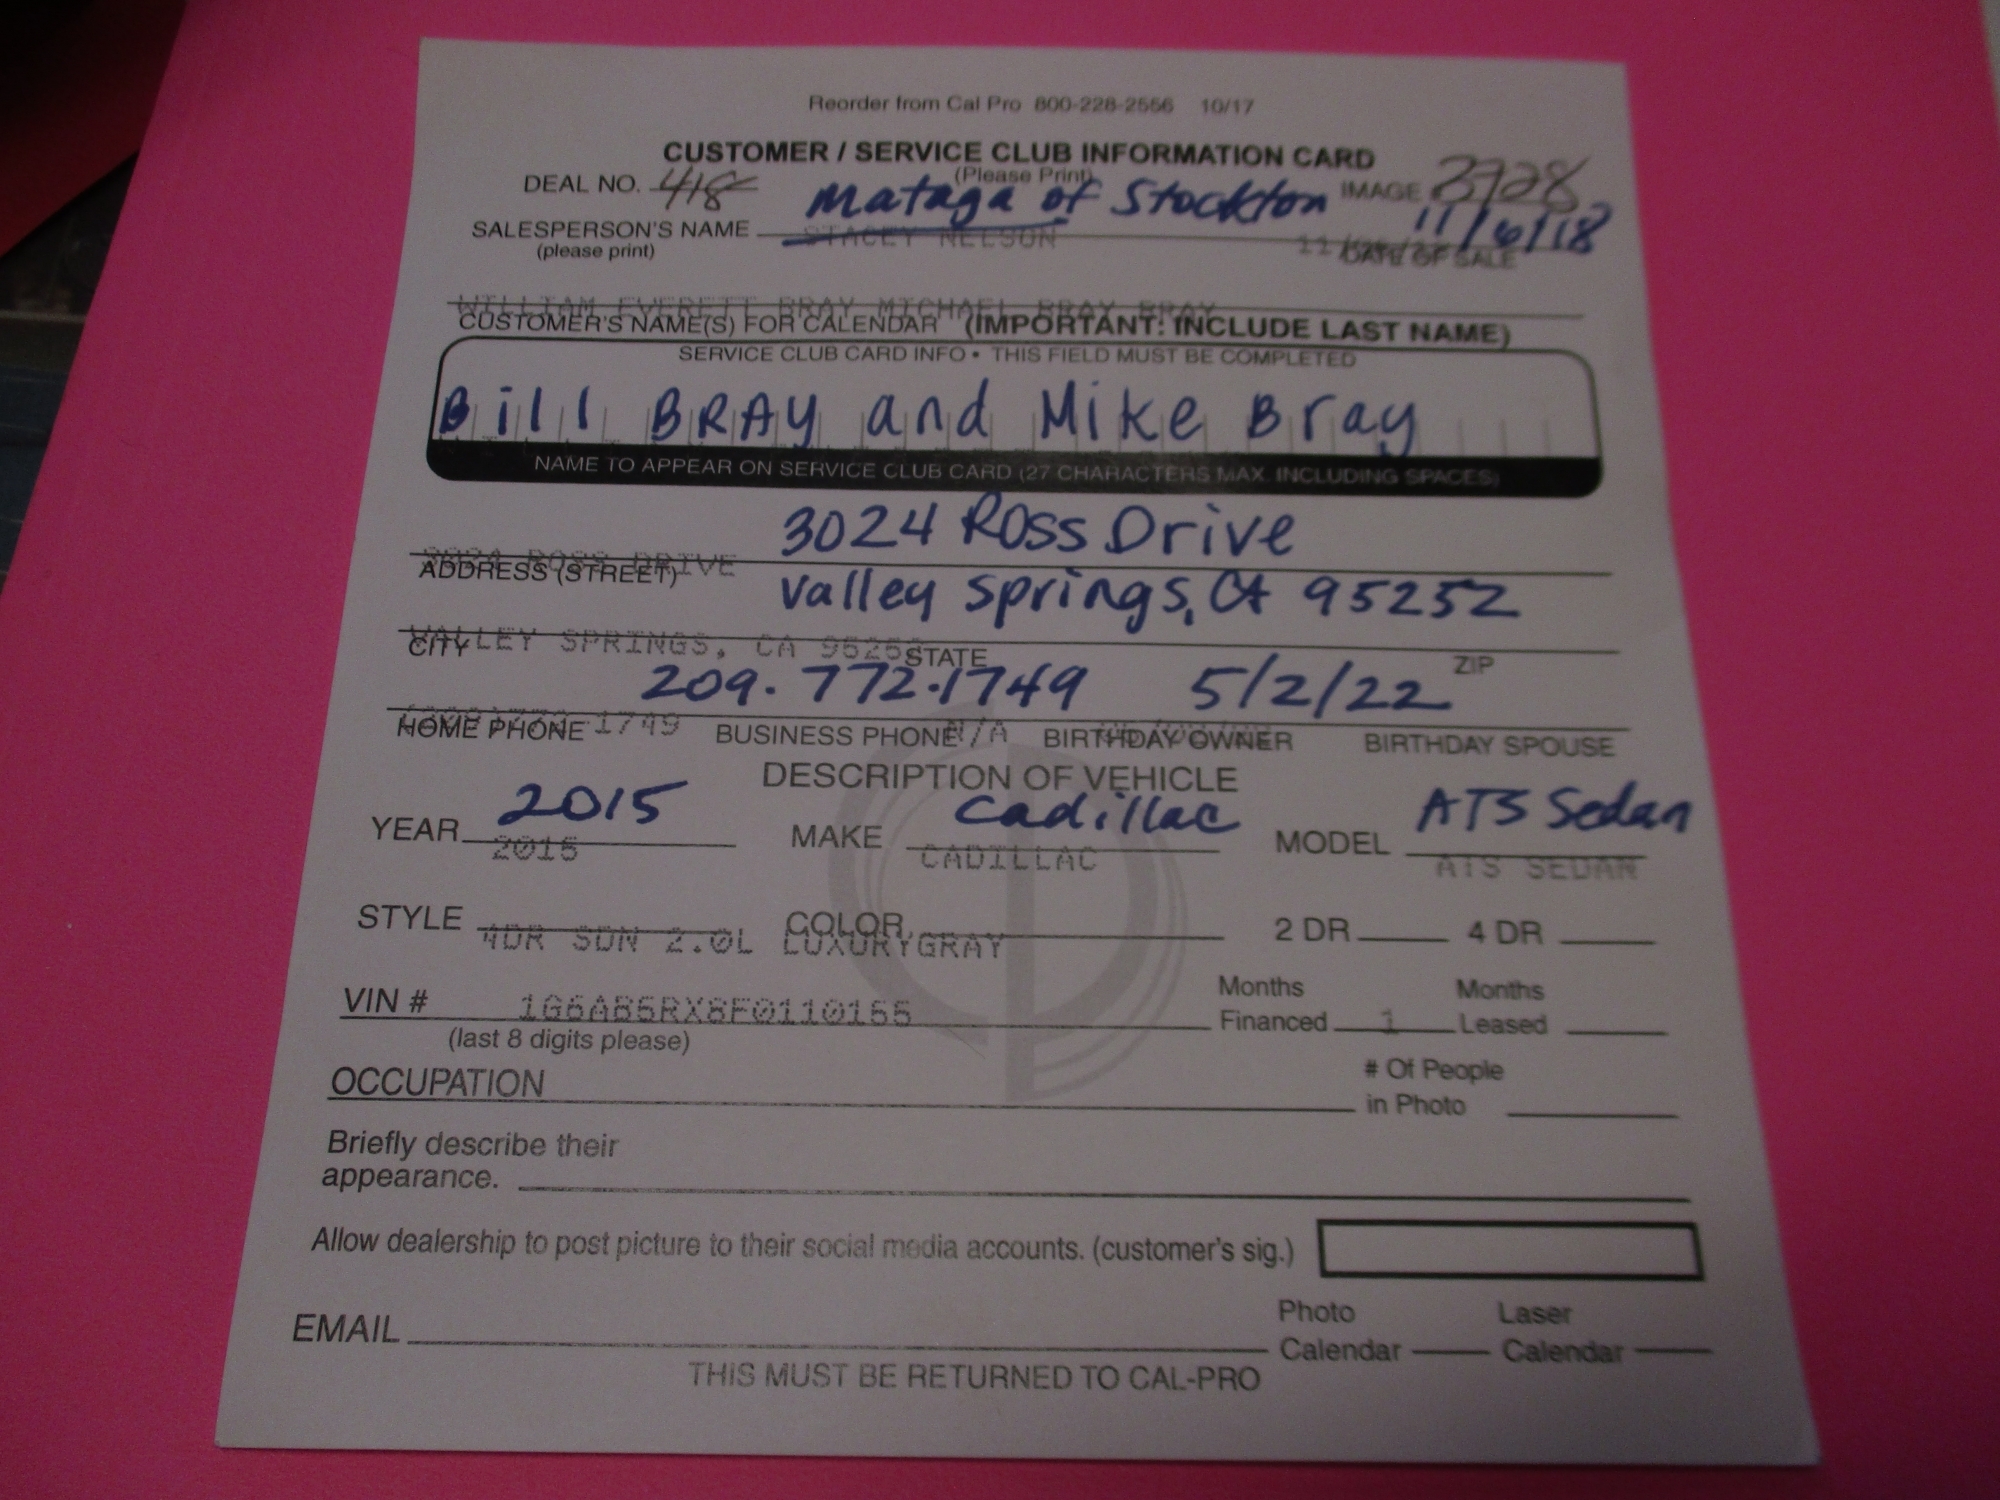 Reorder from Cal Pro 800-228-2556 10/17
CUSTOMER / SERVICE CLUB INFORMATION CARD
(Please Print)
DEAL NO. 418 Mataga of Stockton IMAGE 3728
SALESPERSON'S NAME STACEY NELSON 11/6/18
(please print) DATE OF SALE
WILLIAM EVERETT BRAY MICHAEL BRAY BRAY
CUSTOMER'S NAME(S) FOR CALENDAR (IMPORTANT: INCLUDE LAST NAME)
SERVICE CLUB CARD INFO • THIS FIELD MUST BE COMPLETED
Bill BRAY and Mike Bray
NAME TO APPEAR ON SERVICE CLUB CARD (27 CHARACTERS MAX. INCLUDING SPACES)
3024 Ross Drive
3024 ROSS DRIVE
ADDRESS (STREET)
Valley Springs, CA 95252
VALLEY SPRINGS, CA 95252
CITY STATE ZIP
209.772.1749 5/2/22
1749 N/A
HOME PHONE BUSINESS PHONE BIRTHDAY OWNER BIRTHDAY SPOUSE
DESCRIPTION OF VEHICLE
2015 Cadillac ATS Sedan
YEAR MAKE MODEL
2015 CADILLAC ATS SEDAN
STYLE COLOR 2 DR 4 DR
4DR SDN 2.0L LUXURYGRAY
VIN # 1G6AB5RX8F0110155 Months Financed 1 Months Leased
(last 8 digits please)
OCCUPATION # Of People in Photo
Briefly describe their
appearance.
Allow dealership to post picture to their social media accounts. (customer's sig.)
EMAIL Photo Calendar Laser Calendar
THIS MUST BE RETURNED TO CAL-PRO